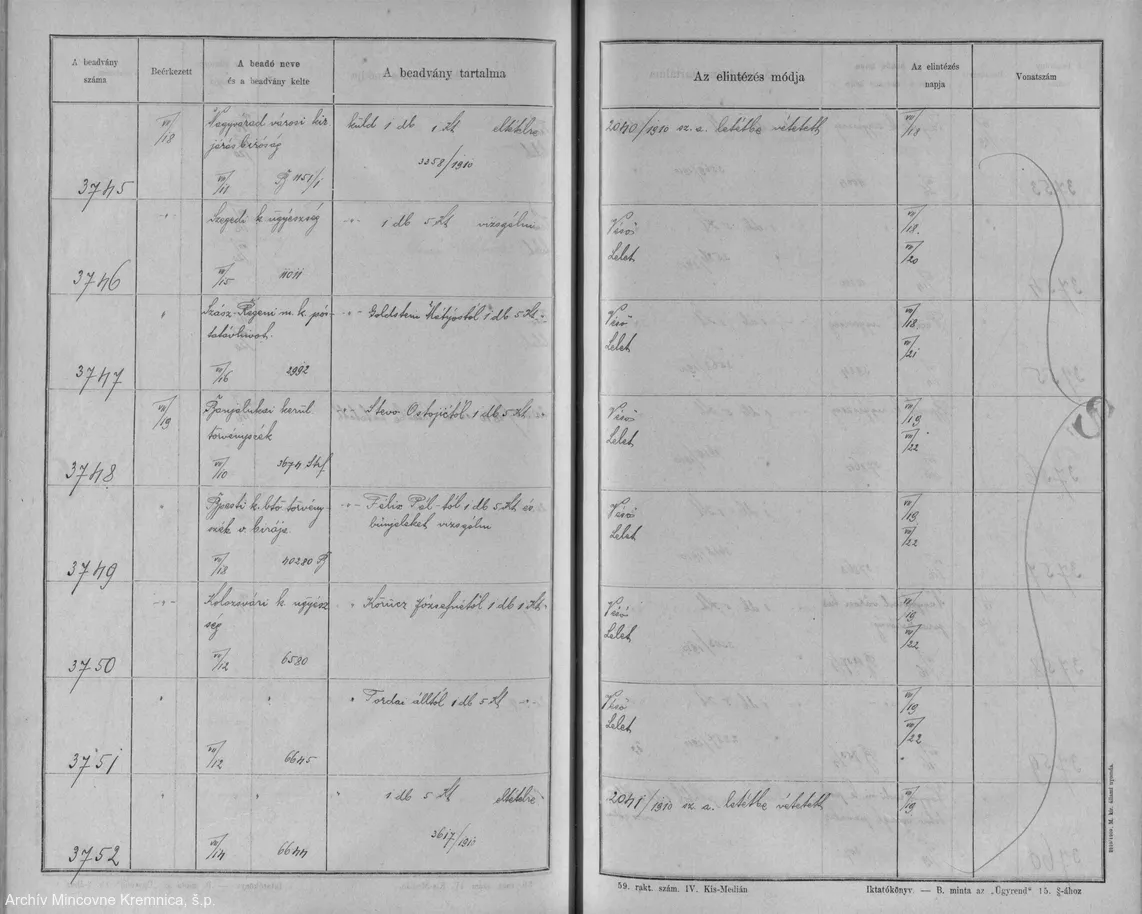 A beadvány száma
Beérkezett
A beadó neve és a beadvány kelte
A beadvány tartalma
Az elintézés módja
Az elintézés napja
Vonatszám
VII/18
Nagyvárad városi kir.
járásbiróság
küld 1 db 1 Kt eltételre
3358/1910
3745
VII/11 B 1151/1
2040/1910 sz. a. letétbe vétetett
VII/18
-"-
Szegedi k. ügyészség
-"- 1 db 5 Kt vizsgálni
3746
VII/15 11011
Véső
VII/18.
Lelet
VII/20
"
Szász-Régeni m. k. pós-
-"- Goldstein Mátyástól 1 db 5 Kt -"-
3747
VII/16 2992
Véső
VII/18
Lelet
VII/21
VII/19
Banjalukai kerül.
törvényszék
-"- Stevo Ostojićtól 1 db 5 Kt -"-
3748
VII/10 3674 Str/
Véső
VII/19
Lelet
VII/22
Bpesti k. btő törvény
szék v. birája
-"- Félix Pál-tól 1 db 5 Kt és
bűnjeleket vizsgálni
3749
VII/18 40280 B
Véső
VII/19
Lelet
VII/22
-"-
Kolozsvári k. ügyész
ség
" Józsefnétől 1 db 1 Kt -"-
3750
VII/12 6580
Véső
VII/19
Lelet
VII/22
" "
" Tordai álltól 1 db 5 Kt -"-
3751
VII/12 6645
Véső
VII/19
Lelet
VII/22
" " "
1 db 5 Kt eltételre
3617/1910
3752
VII/14 6644
2041/1910 sz. a. letétbe vétetett
VII/19.
59. rakt. szám. IV. Kis-Medián
Iktatókönyv. — B. minta az „Ügyrend" 15. §-ához
Archív Mincovne Kremnica, š.p.